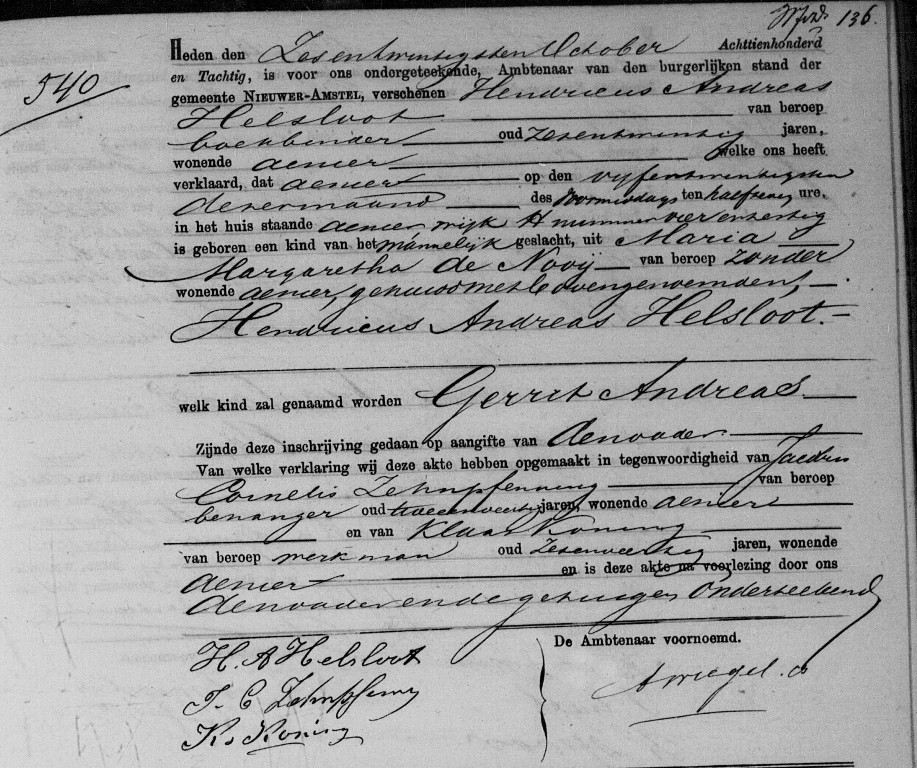 136.
540
Heden den Zesentwintigsten October Achttienhonderd
en Tachtig, is voor ons ondergeteekende, Ambtenaar van den burgerlijken stand der
gemeente NIEUWER-AMSTEL, verschenen Hendricus Andreas
Helsloot van beroep
boekbinder oud zesentwintig jaren,
wonende alhier welke ons heeft
verklaard, dat alhier op den vijfentwintigsten
dezer maand des voormiddags ten half zeven ure.
in het huis staande alhier, wijk H nummer vierenzestig
is geboren een kind van het mannelijk geslacht, uit Maria
Margaretha de Nooij van beroep zonder
wonende alhier, gehuwd met bovengenoemden,
Hendricus Andreas Helsloot.
welk kind zal genaamd worden Gerrit Andreas
Zijnde deze inschrijving gedaan op aangifte van den vader.
Van welke verklaring wij deze akte hebben opgemaakt in tegenwoordigheid van
Cornelis Zehnpfenning van beroep
behanger oud tweeenveertig jaren, wonende alhier
en van Klaas Koning
van beroep werkman oud zesenveertig jaren, wonende
alhier en is deze akte na voorlezing door ons
den vader en de getuigen onderteekend
De Ambtenaar voornoemd.
H. A Helsloot
J. C Zehnpfenning
K. Koning